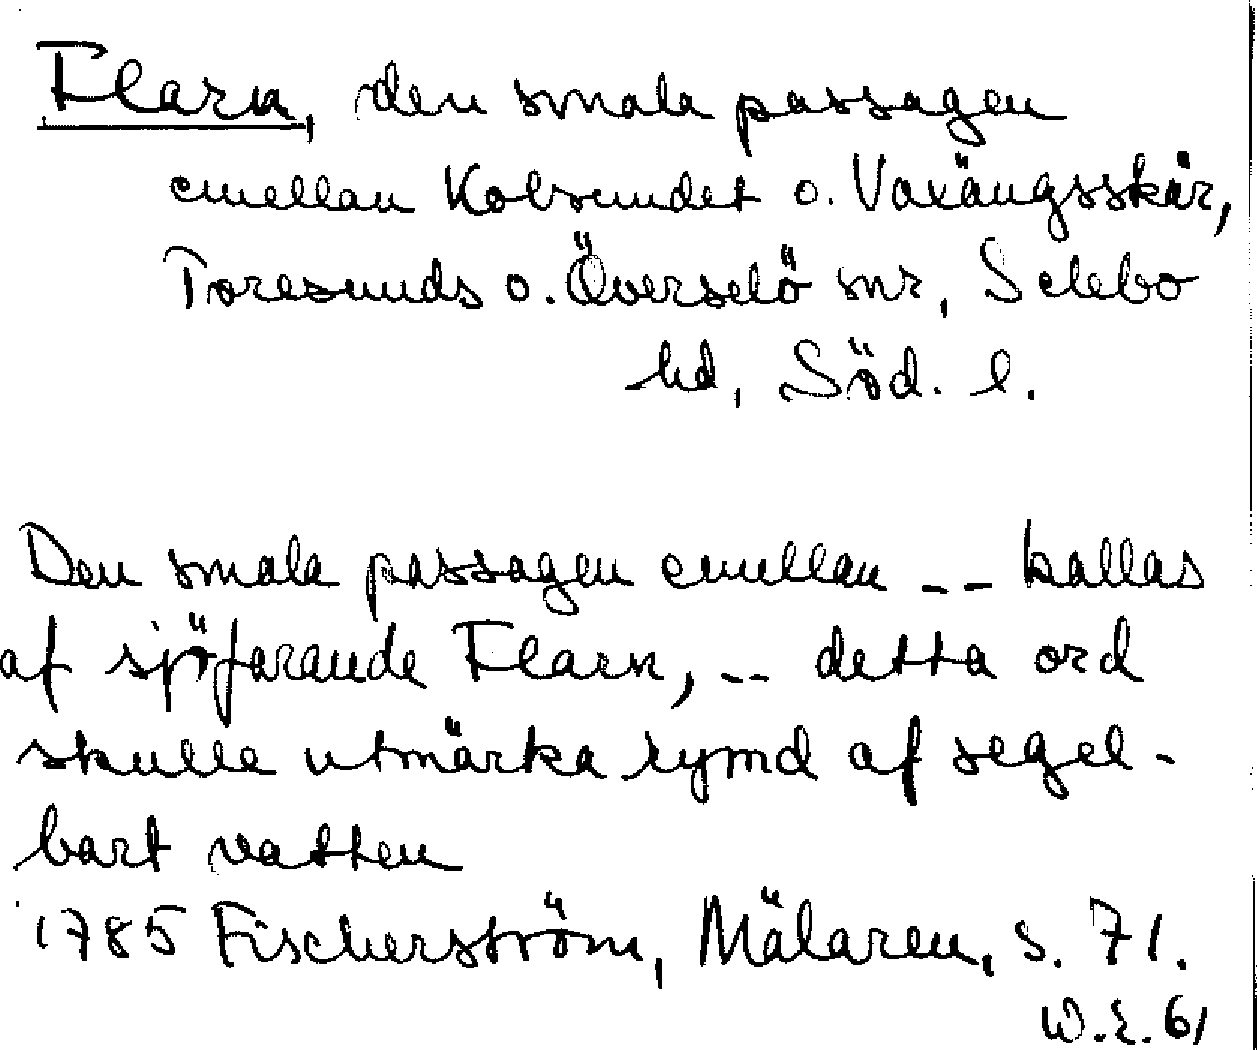 Flarn, den smala passagen
emellan Kolsundet o. Vaxängsskär,
Toresunds o. Överselö snr, Selebo
hd, Söd. l.
Den smala passagen emellan -- kallas
af sjöfarande Flarn, -- detta ord
skulle utmärka rymd af segel-
bart vatten
1785 Fischerström, Mälaren, s. 71.
W.E. 61